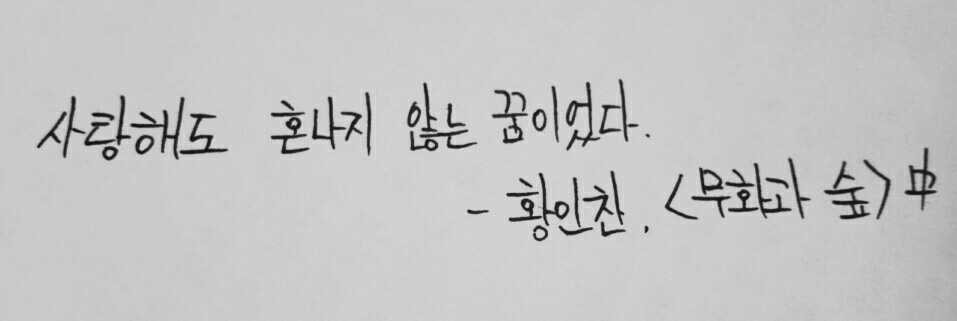 사랑해도 혼나지 않는 꿈이었다.
- 황인찬, <무화과 숲> 中